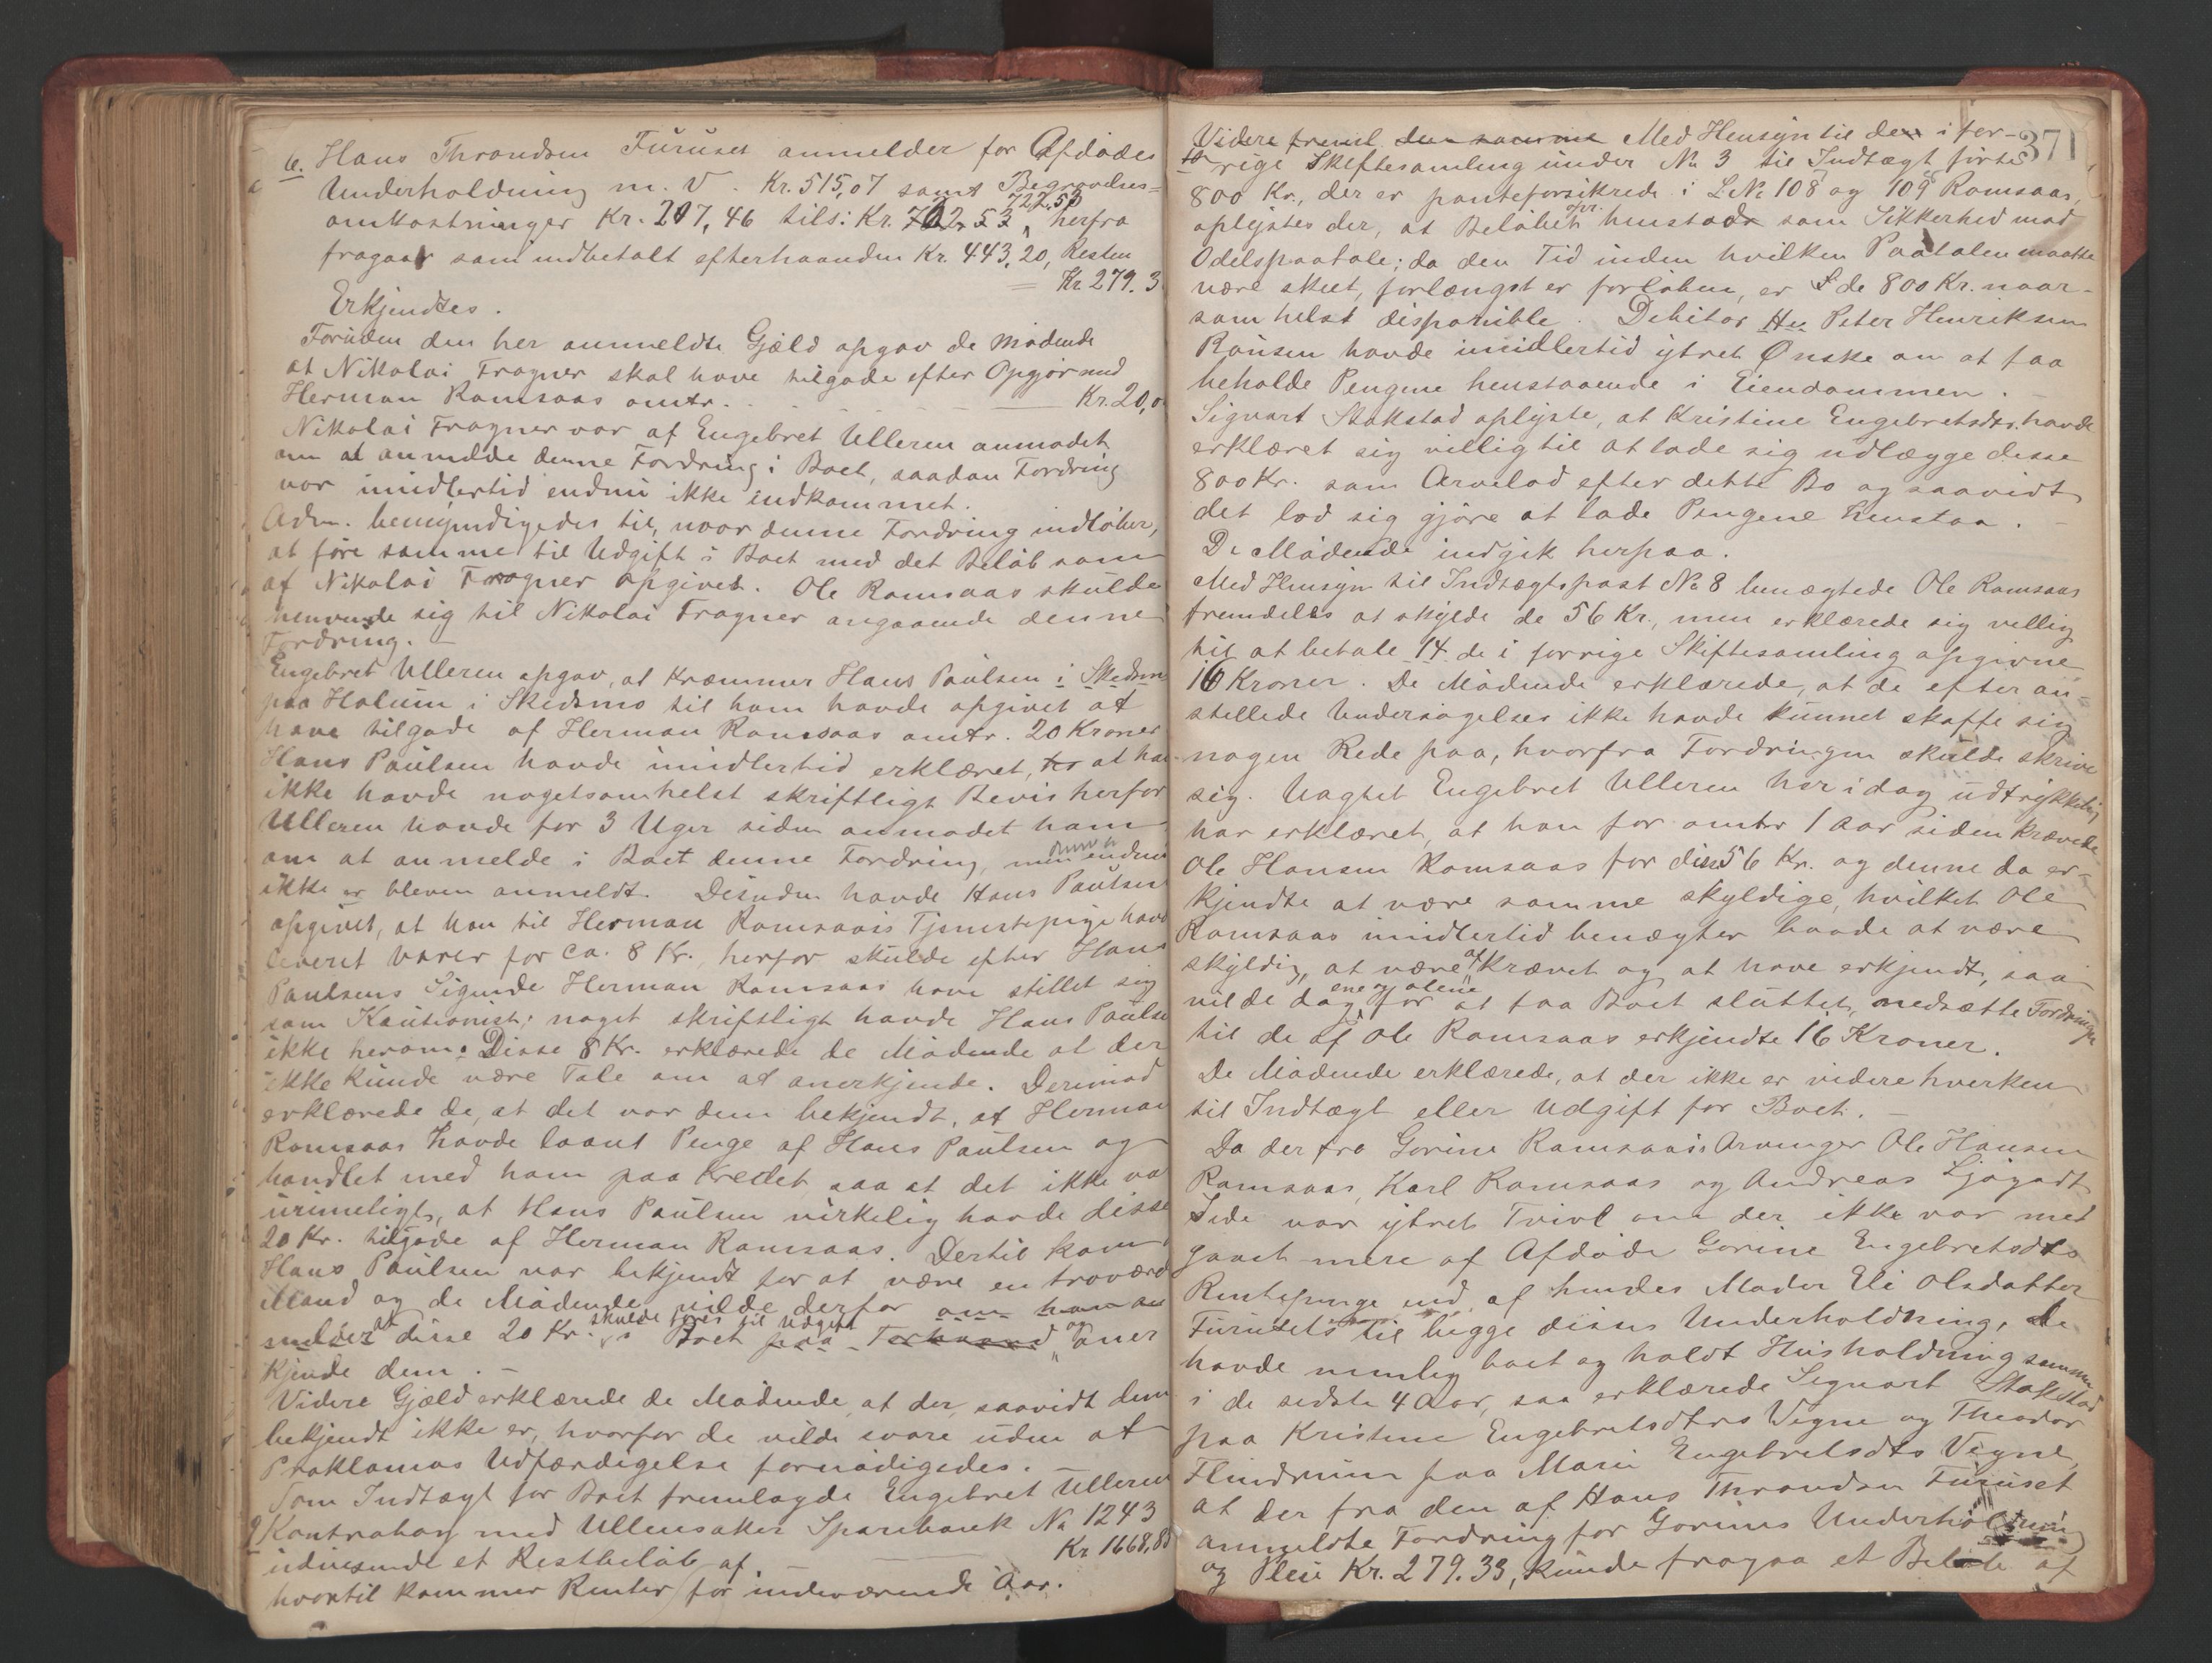 6. Hans Throndsen Furuset anmelder for Afdødes
Underholdning m. V. Kr. 515,07 samt Begravelses=
omkostninger Kr. 207,46 tils: Kr. 702.53 722.53 herfra
fragaar som indbetalt efterhaanden Kr. 443,20, Resten
Kr 279.3
Erkjendtes.
Foruden den her anmeldte Gjæld opgav de Mødende
at Nikolai Fragner skal have tilgode efter Opgjør med
Herman Ramsaas omtr. Kr. 20,0
Nikolai Fragner var af Engebret Ulleren anmodet
om at anmelde denne Fordring i Boet, saadan Fordring
var imidlertid endnu ikke indkommet.
Adm. bemyndigedes til, naar denne Fordring indløber,
at føre samme til Udgift i Boet med det Beløb som
af Nikolai Fragner opgivet. Ole Ramsaas skulde
henvende sig til Nikolai Fragner angaaende denne
Fordring.
Engebret Ulleren opgav, at Kræmmer Hans Paulsen i Skedsm
paa Holum i Skedsmo til ham havde opgivet at
have tilgode af Herman Ramsaas omtr. 20 Kroner
Hans Paulsen havde imidlertid erklæret, at han
ikke havde nogetsomhelst skriftligt Bevis herfor
Ulleren havde for 3 Uger siden anmodet ham
om at anmelde i Boet denne Fordring, men denne endnu
ikke er bleven anmeldt. Desuden havde Hans Paulsen
opgivet, at han til Herman Ramsaas's Tjenestepige havd
leveret Varer for ca. 8 Kr., herfor skulde efter Hans
Paulsens Sigende Herman Ramsaas have stillet sig
som Kautionist; noget skriftligt havde Hans Paulse
ikke herom. Disse 8 Kr. erklærede de Mødende at der
ikke kunde være Tale om at anerkjende. Derimod
erklærede de, at det var dem bekjendt, at Herman
Ramsaas havde laant Penge af Hans Paulsen og
handlet med ham paa Kredit saa at det ikke va
urimeligt, at Hans Paulsen virkelig havde disse
20 Kr. tilgode af Herman Ramsaas. Dertil kom
Hans Paulsen var bekjendt for at være en troværd
Mand og de Mødende vilde derfor om han an
melder at disse 20 Kr. skulde føres til Udgift i Boet paa Forhaand og aner
kjende dem.
Videre Gjæld erklærede de Mødende at der, saavidt dem
bekjendt ikke er, hvorfor de vilde svare uden at
Proklamas Udfærdigelse fornødigedes.
Som Indtægt for Boet fremlagde Engebret Ulleren
9 Kontrabog med Ullensaker Sparebank No 1243
udvisende et Restbeløb af Kr 1668,88
hvortil kommer Renter for indeværende Aar.
371
Videre freml. den samme Med Hensyn til den i for-
rige Skiftesamling under No 3 til Indtægt førte
800 Kr., der er panteforsikrede i L.No 108 og 109 Ramsaas,
oplystes der, at Beløbet opr. henstod som Sikkerhed mod
Odelspaatale; da den Tid inden hvilken Paatalen maatte
være skeet, forlængst er forløben, er de 800 Kr. naar-
somhelst disponible. Debitor Peter Henriksen
Rausen havde imidlertid ytret Ønske om at faa
beholde Pengene henstaaende i Eiendommen.
Sigvart Stakstad oplyste, at Kristine Engebretsdtr. havde
erklæret sig villig til at lade sig udlægge disse
800 Kr. som Arvelod efter dette Bo og saavidt
det lod sig gjøre at lade Pengene henstaa.
De Mødende indgik herpaa.
Med Hensyn til Indtægtspost No 8 benægtede Ole Ramsaas
fremdeles at skylde de 56 Kr., men erklærede sig villig
til at betale 14 de i forrige Skiftesamling opgivne
16 Kroner. De Mødende erklærede, at de efter an-
stillede Undersøgelser ikke havde kunnet skaffe sig
nogen Rede paa, hvorfra Fordringen skulde skrive
sig. Uagtet Engebret Ulleren her i dag udtrykkelig
har erklæret, at han for omtr 1 Aar siden krævede
Ole Hansen Ramsaas for disse 56 Kr. og denne da er-
kjendte at være samme skyldige, hvilket Ole
Ramsaas imidlertid benægter baade at være
skyldig, at være af Krævet og at have erkjendt, saa
vilde dog ene og alene for at faa Boet sluttet, nedsætte Fordringen
til de af Ole Ramsaas erkjendte 16 Kroner.
De Mødende erklærede, at der ikke er videre hverken
til Indtægt eller Udgift for Boet.
Da der fra Gorine Ramsaas's Arvinger Ole Hansen
Ramsaas, Karl Ramsaas og Andreas Ljøgodt
Side var ytret Tvivl om der ikke var med
gaaet mere af Afdøde Gorine Engebretsdtrs
Rentepenge end af hendes Moder Eli Olsdatter
Furusets til begge disses Underholdning, de
havde nemlig boet og holdt Husholdning sammen
i de sidste 4 Aar, saa erklærede Sigvart Stakstad
paa Kristine Engebretsdtrs Vegne og Theodor
Flindrum paa Marie Engebretsdtrs Vegne,
at der fra den af Hans Throndsen Furuset
anmeldte Fordring for Gorines Underholdning
og Pleie Kr. 279.33, kunde fragaa et Beløb af